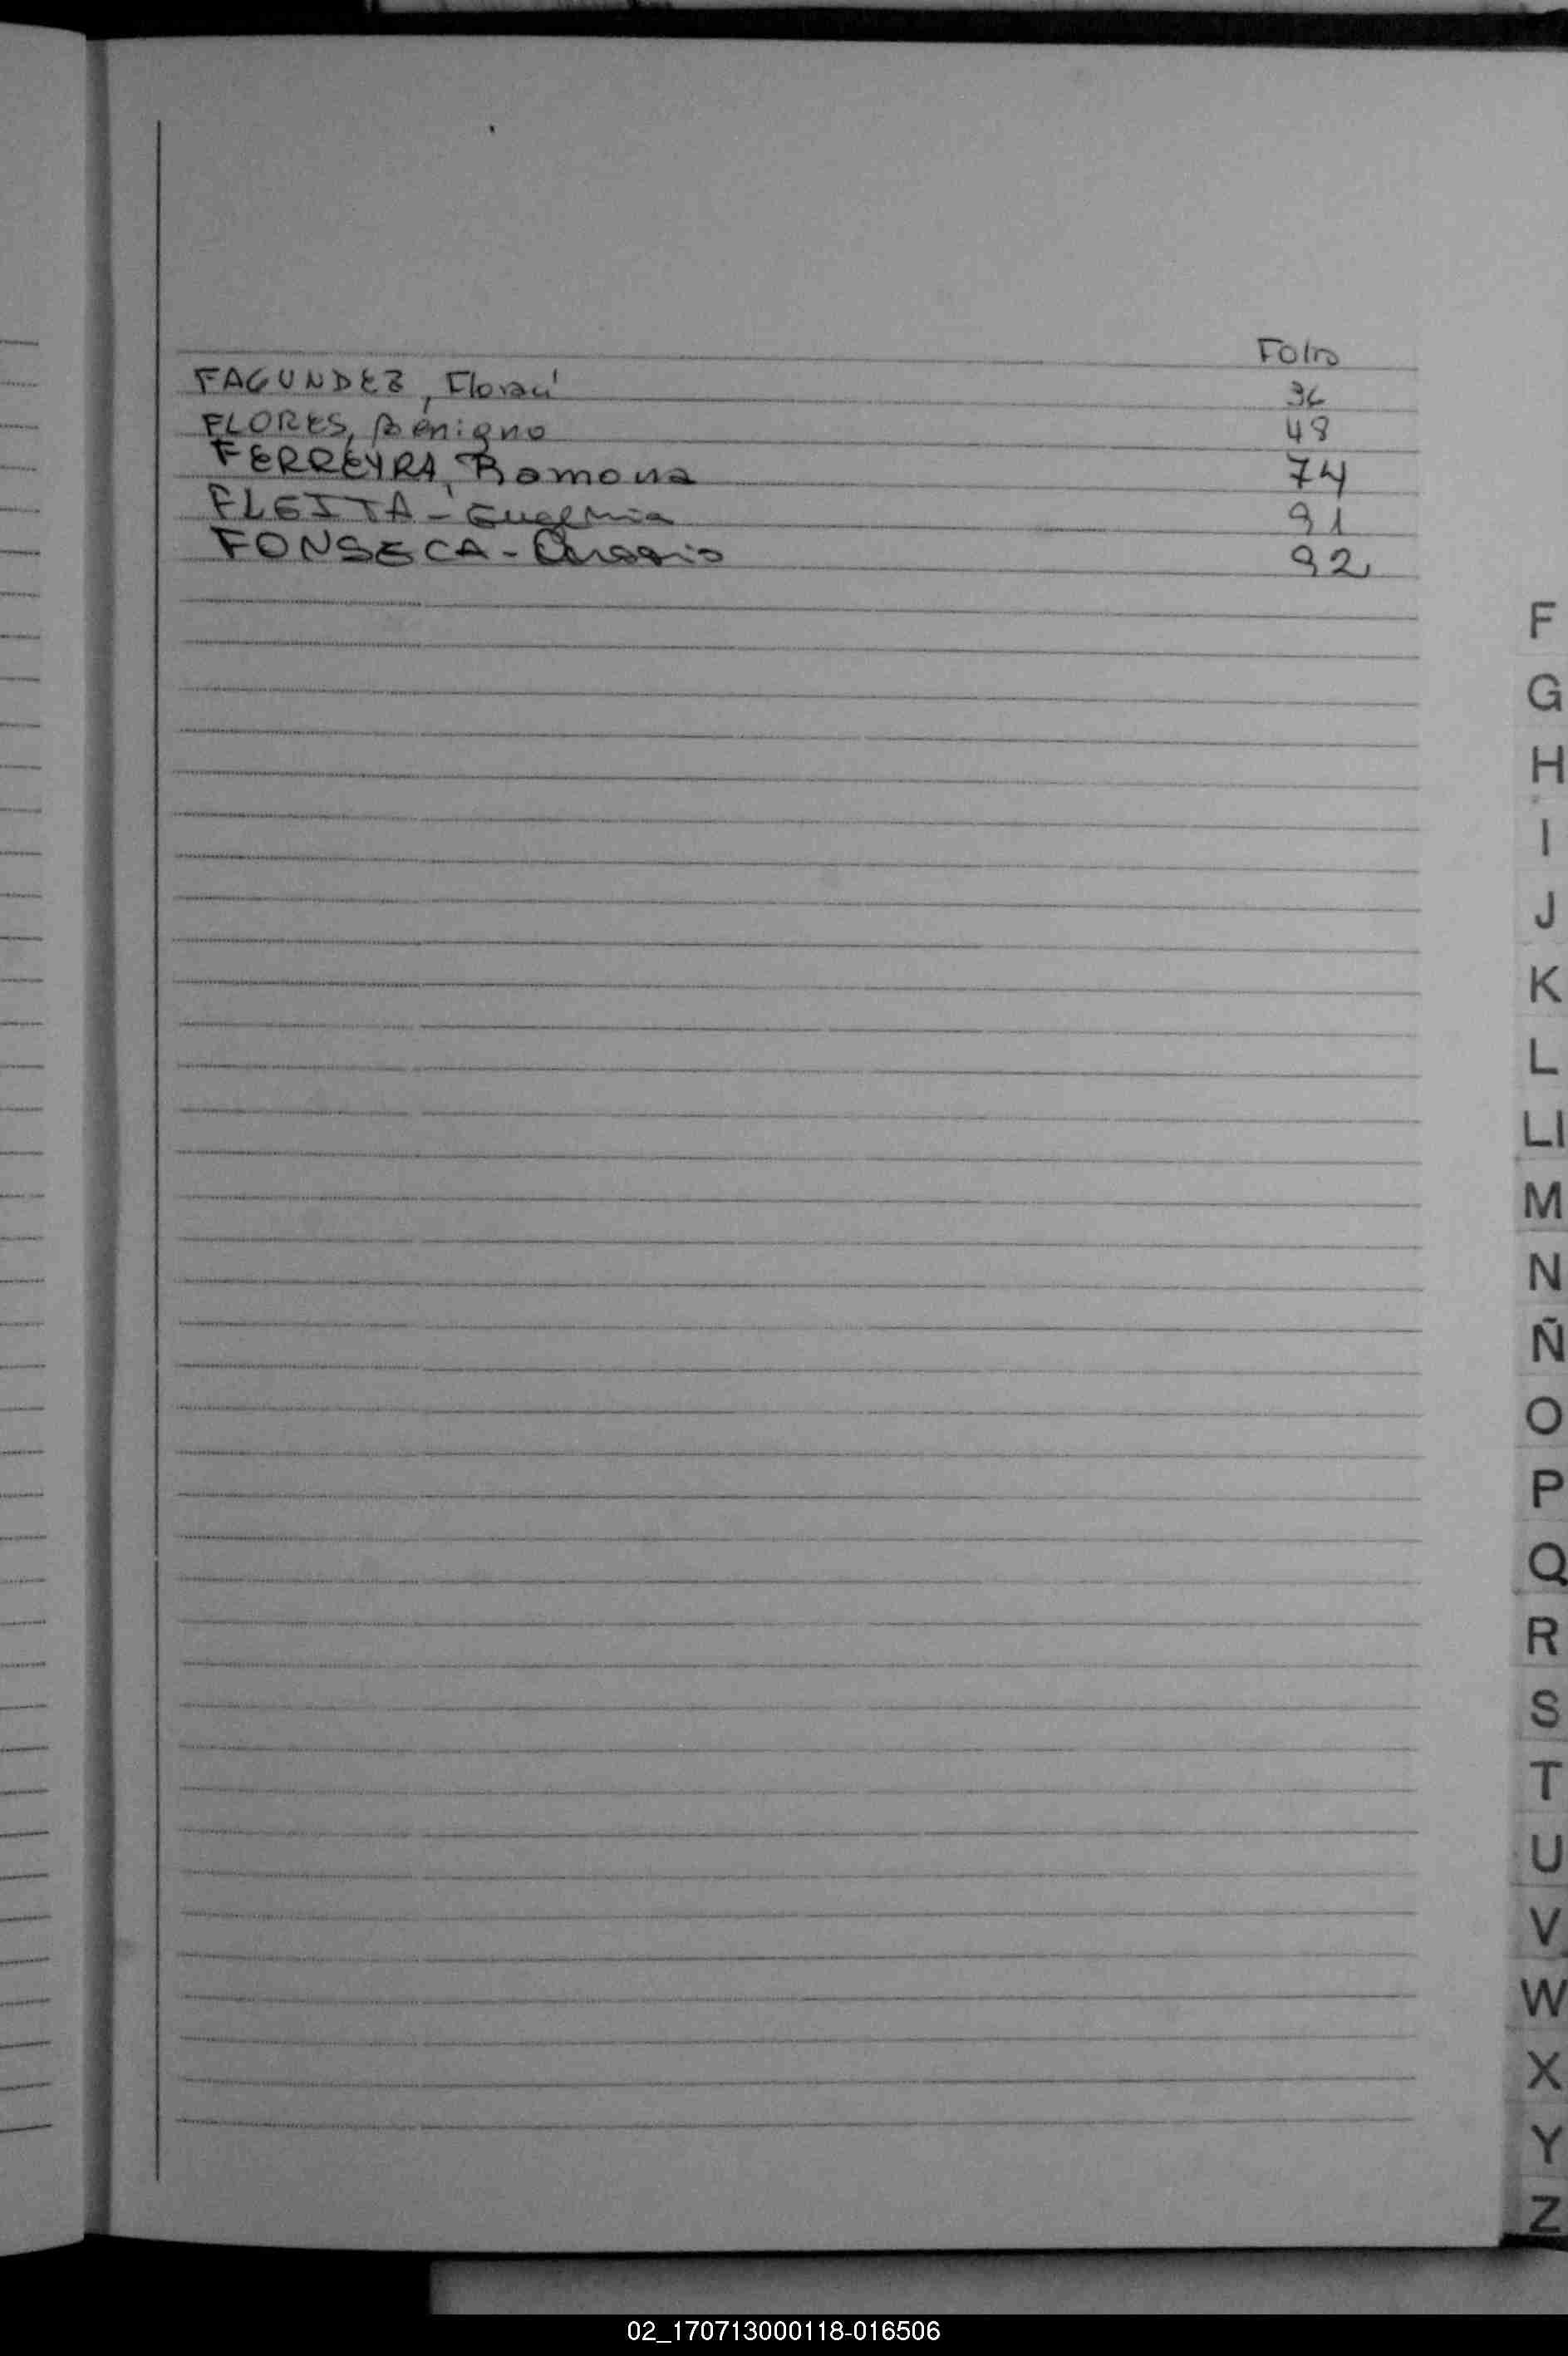 Folio
FAGUNDEZ, Floraci 36
FLORES, Benigno 48
FERREYRA, Ramona 74
FLEITA - Eugenia 91
FONSECA - 92
F
G
H
I
J
K
L
Ll
M
N
Ñ
O
P
Q
R
S
T
U
V
W
X
Y
Z
02_170713000118-016506